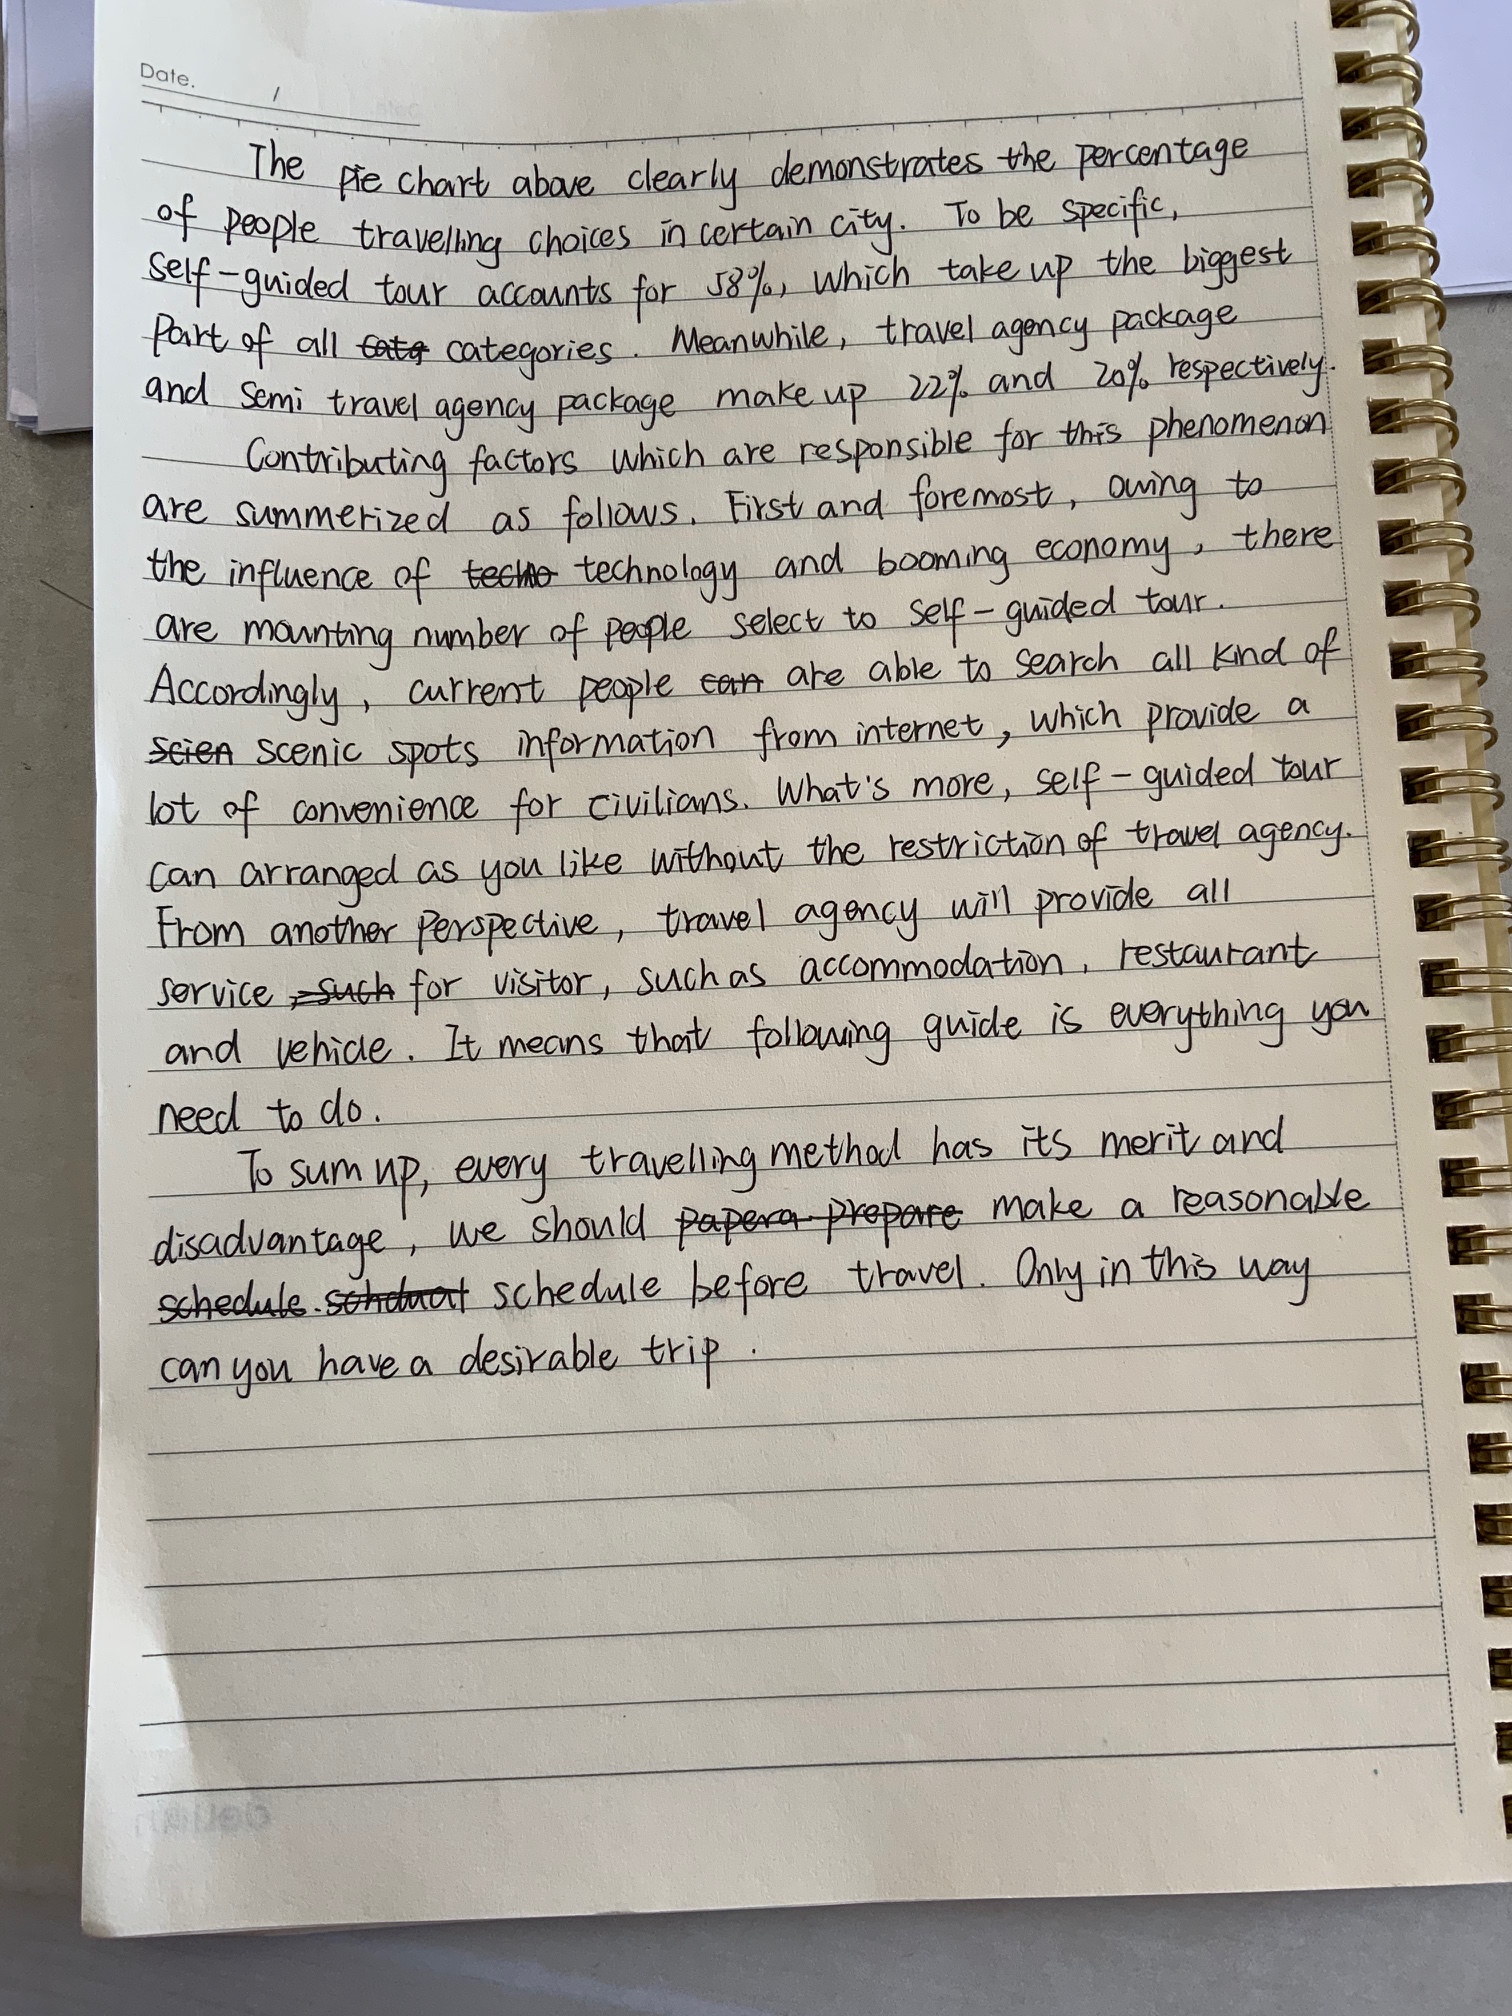 Date. /
The pie chart above clearly demonstrates the percentage
of people travelling choices in certain city. To be specific,
self-guided tour accounts for 58%, which take up the biggest
part of all catg categories. Meanwhile, travel agency package
and semi travel agency package make up 22% and 20% respectively.
Contributing factors which are responsible for this phenomenon
are summerized as follows. First and foremost, owing to
the influence of techno technology and booming economy, there
are mounting number of people select to self-guided tour.
Accordingly, current people can are able to search all kind of
scien scenic spots information from internet, which provide a
lot of convenience for civilians. What's more, self-guided tour
can arranged as you like without the restriction of travel agency.
From another perspective, travel agency will provide all
service, such for visitor, such as accommodation, restaurant
and vehicle. It means that following guide is everything you
need to do.
To sum up, every travelling method has its merit and
disadvantage, we should papera prepare make a reasonable
schedule. schedule before travel. Only in this way
can you have a desirable trip.